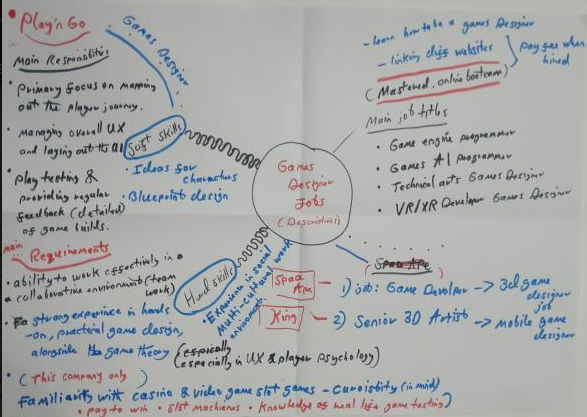 • Play'n Go
Games Designer
Main Responsibilities
• Primary focus on mapping
out the player journey.
• Managing overall UX
and laying out the UI
• Play testing &
providing regular
feedback (detailed)
of game builds.
Soft skills
• Ideas for
characters
• Blueprint design
Games
Designer
Jobs
(Descriptions)
- Learn how to be a games Designer
- linking diff websites
pay fee when
hired
(Mastered. online bootcamp)
Main job titles
• Game engine programmer
• Games AI programmer
• Technical arts Games Designer
• VR/XR Developer Games Designer
Main Requirements
• ability to work effectively in a
a collaborative environment (team
work)
• strong experience in hands
-on, practical game design,
alongside the game theory (espically
(especially in UX & player psychology)
Hard skills
• Experience in social
Multi-cultural work
environment.
Spaa Ape
Spaa
Ape
1) job: Game Devolper → 3d game
designer
job
King
2) Senior 3D Artist → mobile game
designer
• (This company only)
Familiarity with casino & video game slot games - curoistity (in mind)
• pay to win • slot machines • Knowledge of real life game testing)